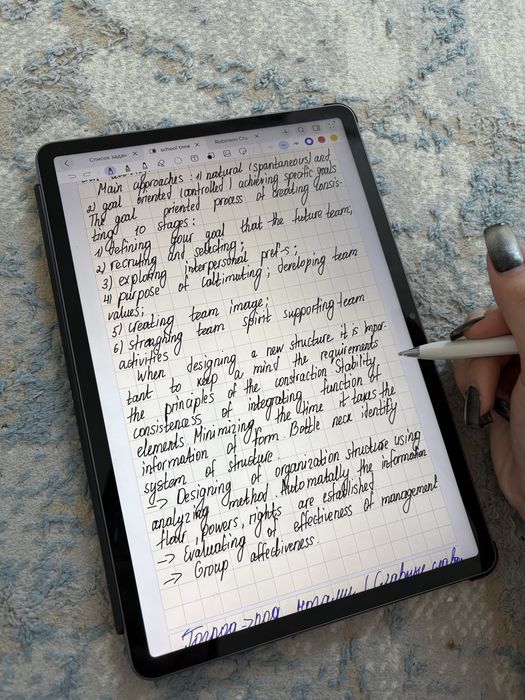 Список задач × school time × Robinson Cru ×
Main approaches: 1) natural (spantaneous) and
2) goal oriented (controlled) achieving specific goals
The goal oriented process of creating consis-
ting 10 stages:
1) defining your goal that the future team;
2) recruting and selecting;
3) exploting interpersonal pref-s;
4) purpose of caltimuting; developing team
values;
5) creating team image;
6) straghing team spirit supporting team
activities
When designing a new structure it is impor-
tant to keep a mind the requirements
the principles of the constraction stability
consistencess of integrating function of
elements. Minimizing the time it takes the
information of form. Bottle neck identify
system of structure.
-> Designing of organization structure using
analyzing method. Automatally the information
flow, powers, rights are established
-> Evaluating of effectiveness of management
-> Group affectiveness